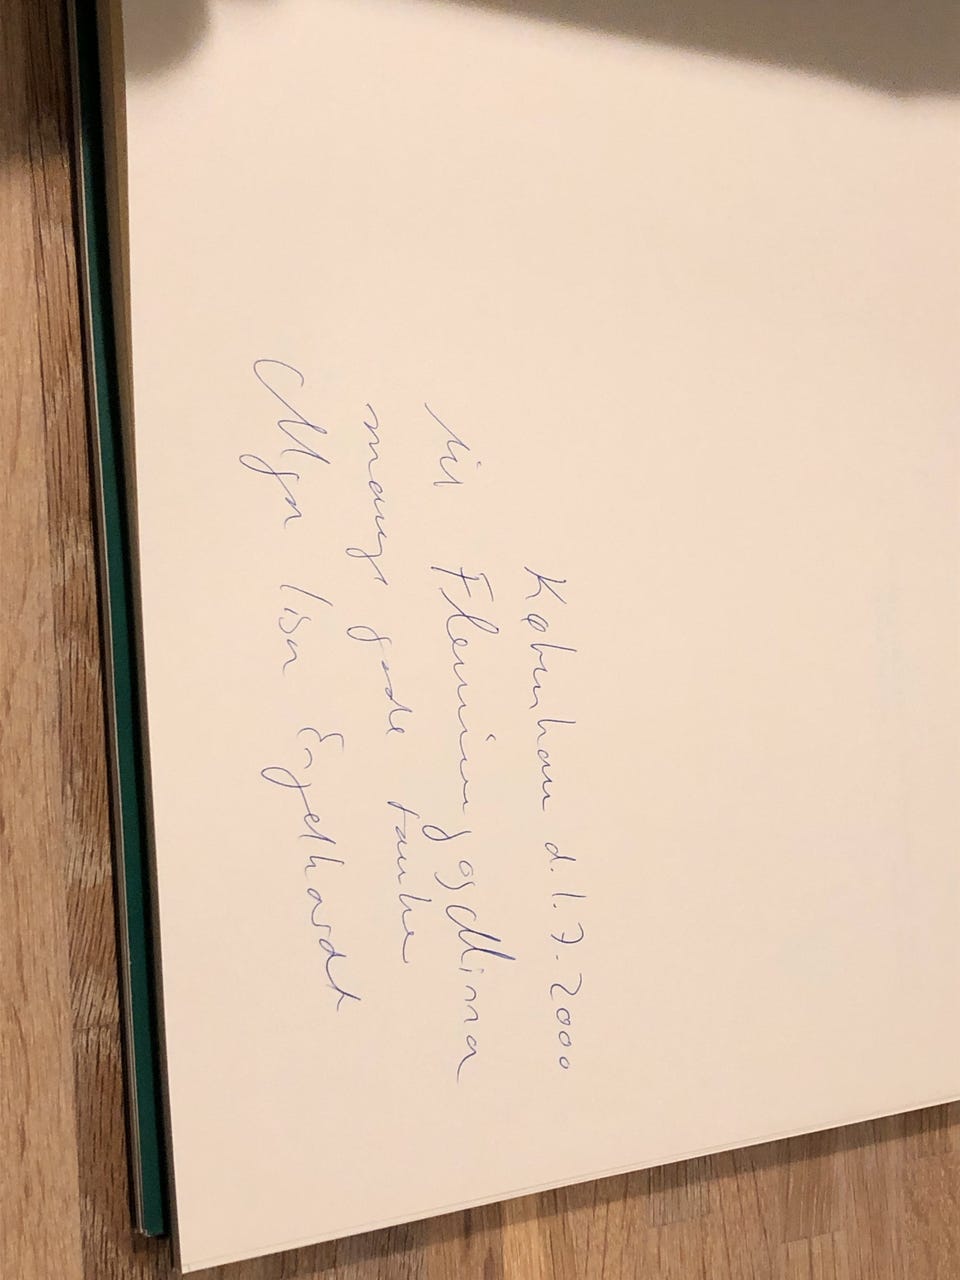 København d. 1.7.2000
til Flemming og Minna
mange gode tanker
Lisa Engelhardt